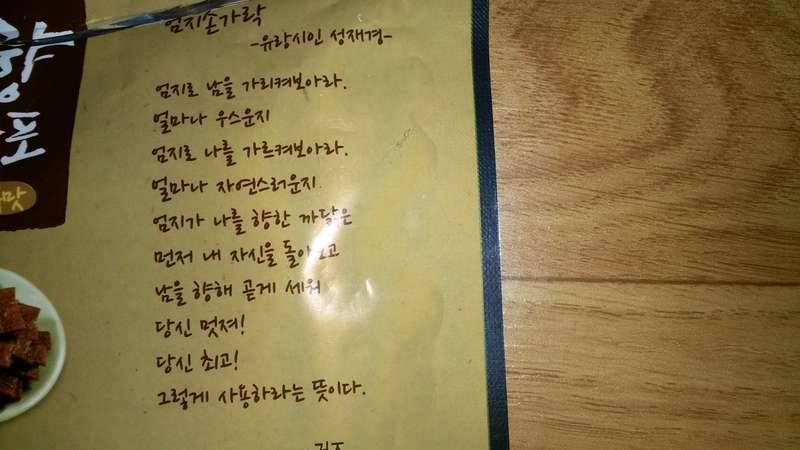 엄지손가락
-유랑시인 성재경-
엄지로 남을 가리켜보아라.
얼마나 우스운지
엄지로 나를 가르켜보아라.
얼마나 자연스러운지
엄지가 나를 향한 까닭은
먼저 내 자신을 돌아보고
남을 향해 곧게 세워
당신 멋져!
당신 최고!
그렇게 사용하라는 뜻이다.
맛